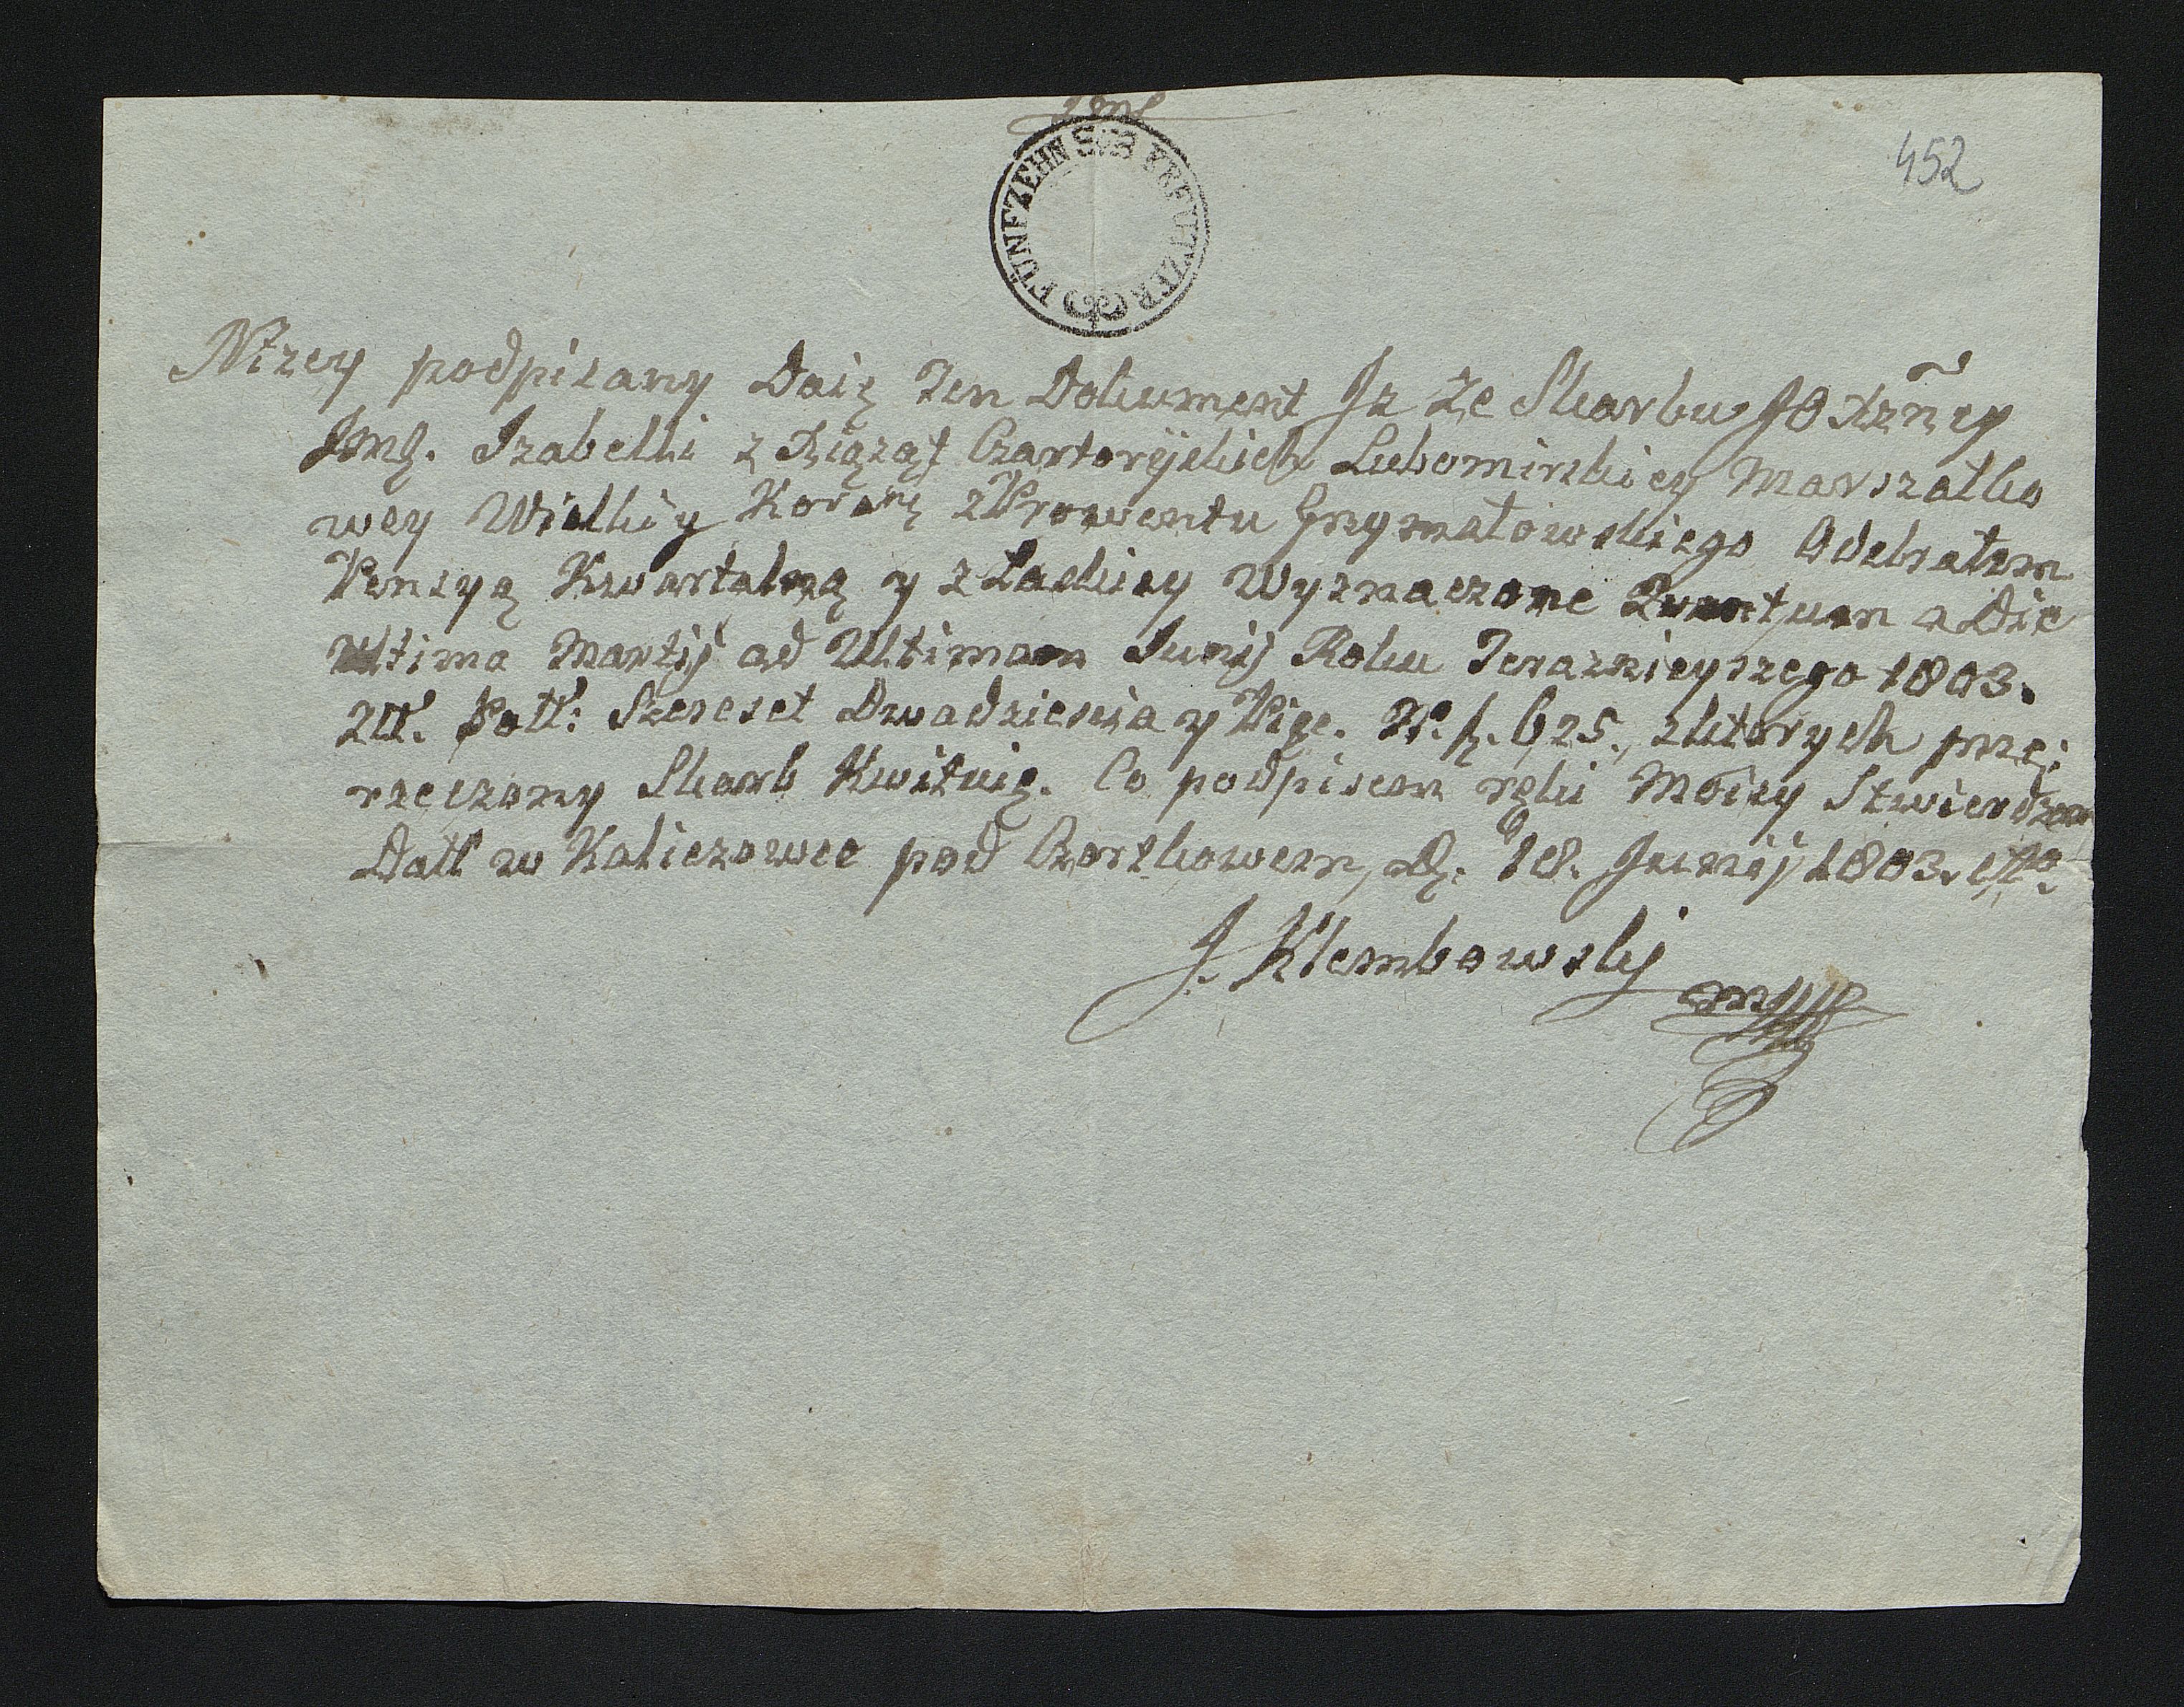 452
FÜNFZEHN SIEB KREUTZER
Niżey podpisany Daię Ten Dokument Iz Ze Skarbu JO Xzñey
Jmę. Izabelli z Xiąząt Czartoryskich Lubomirskiey Marszałko
wey Wielkiy Koroñ z Prowentu Grzymałowskiego Odebrałem
Pensyą Kwartalną y z Łaskiey Wyznaczone Quantum a Die
Ultima Martij ad Ultimam Junij Roku Teraznieyszego 1803.
Złł. Poll: Szescset Dwadziescia y Pięc. 625. zktorych prze:
rzeczony Skarb Kwituię. Co podpisem ręki Moiey Stwierdzam
Datt w Kaliczowce pod Czortkowem, D. 18. Junij 1803.
J. Klembowsky
mpp